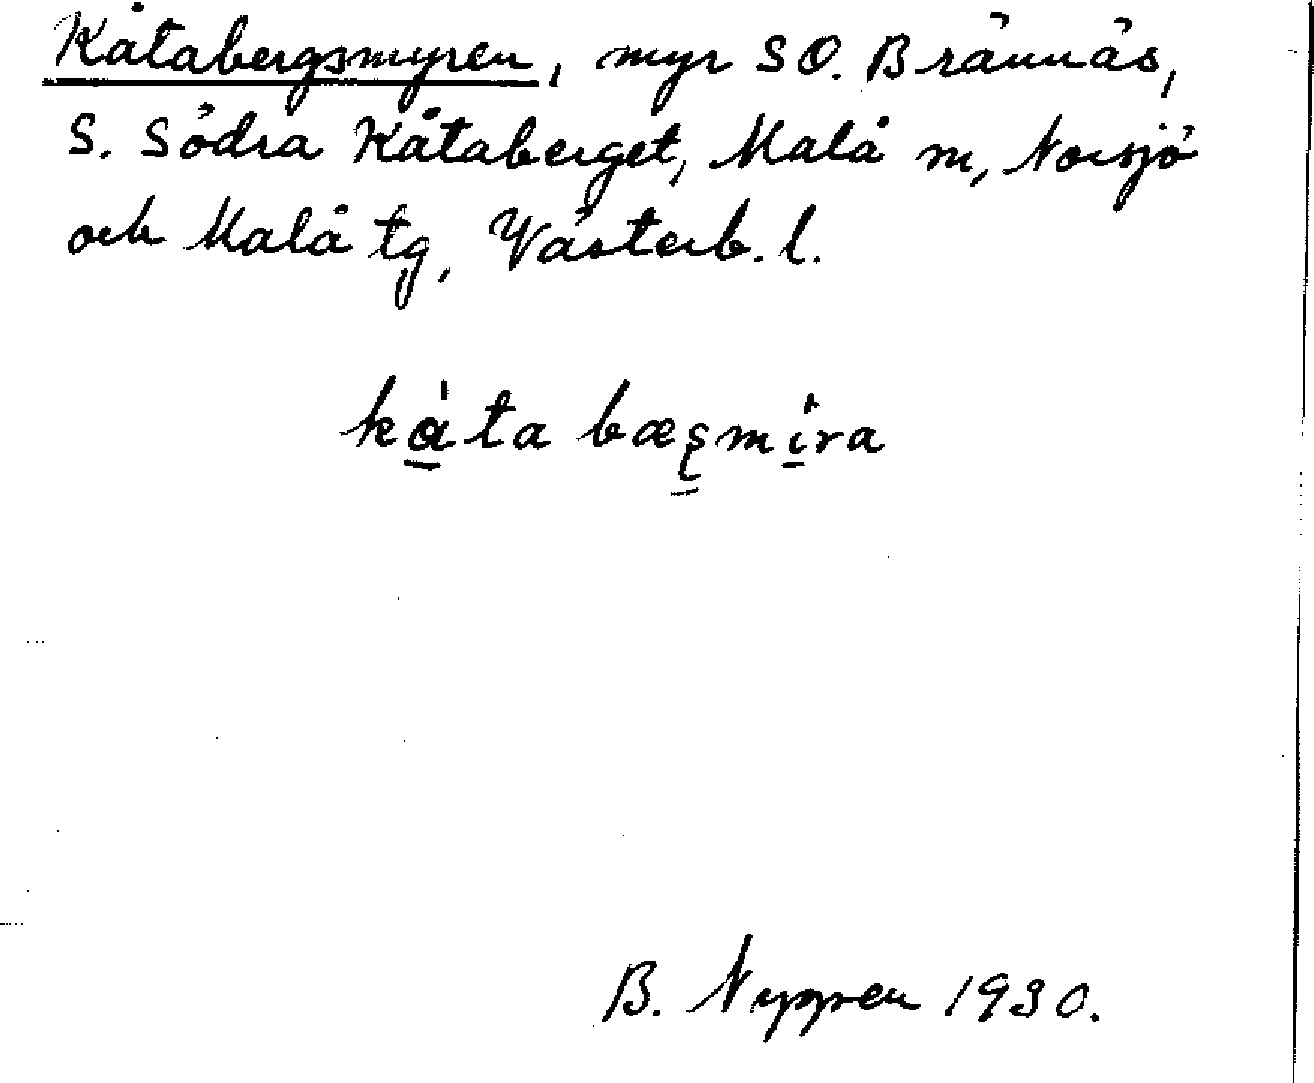 Kåtabergsmyren, myr SO. Brännäs,
S. Södra Kåtaberget, Malå m, Norsjö
och Malå tg, Västerb. l.
kåta bæșmira
B. Nygren 1930.